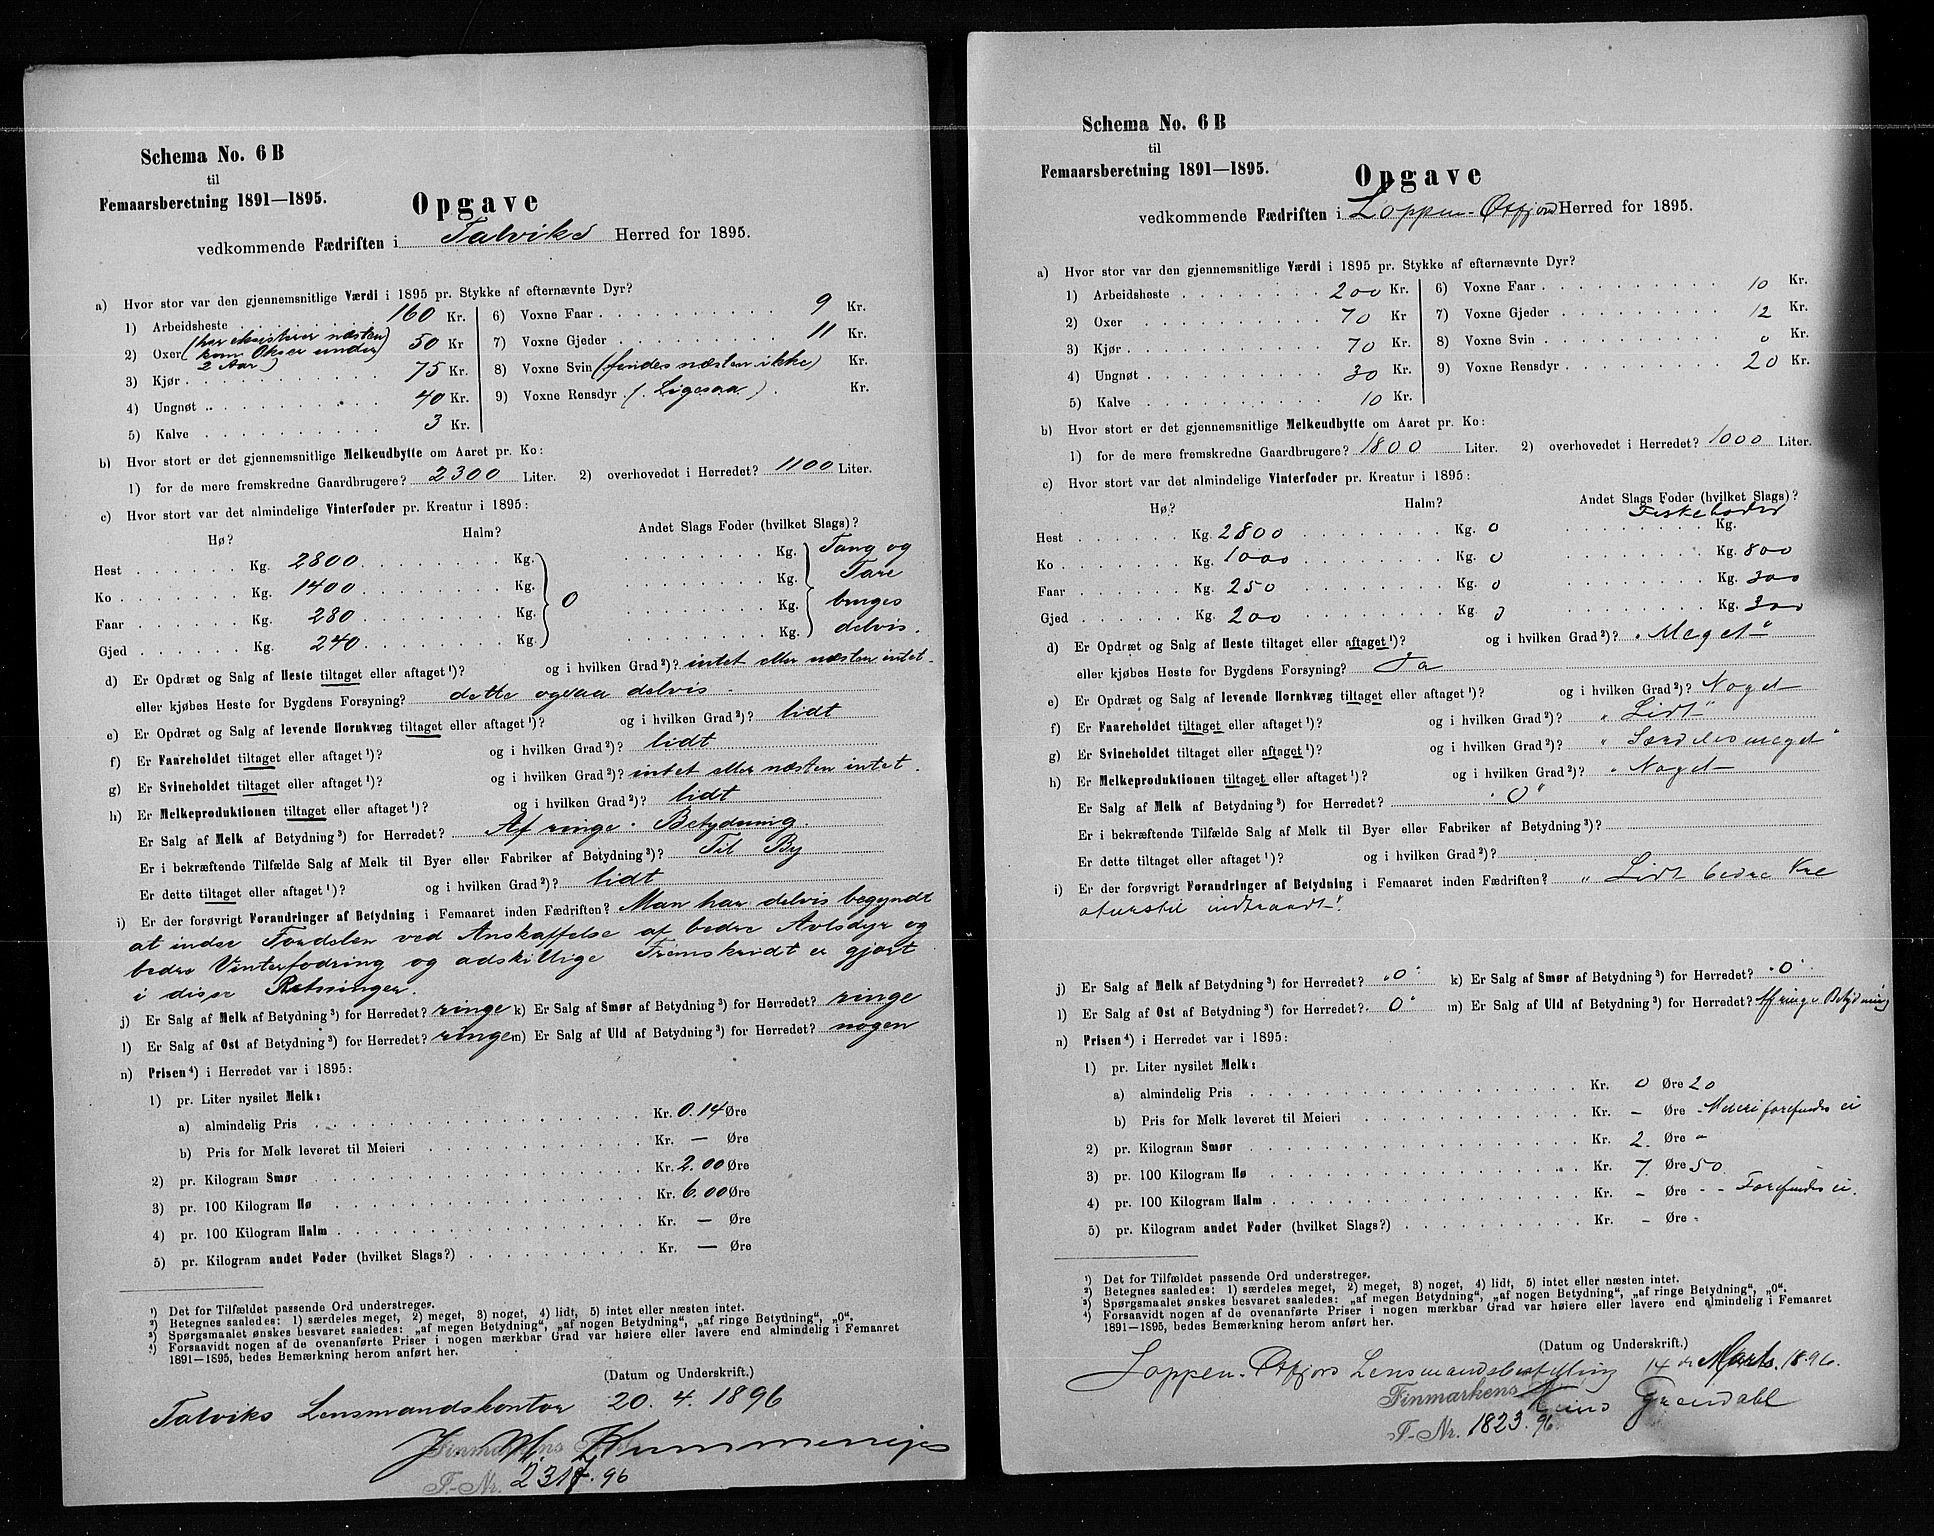 Schema No. 6 B
til
Femaarsberetning 1891—1895.
Opgave
vedkommende Fædriften i Talviks Herred for 1895.
a) Hvor stor var den gjennemsnitlige Værdi i 1895 pr. Stykke af efternævnte Dyr?
1) Arbeidsheste 160 Kr.
2) Oxer (her eksisterer næsten kun Okser under 2 Aar) 50 Kr
3) Kjør 75 Kr.
4) Ungnøt 40 Kr.
5) Kalve 3 Kr.
6) Voxne Faar 9 Kr.
7) Voxne Gjeder 11 Kr.
8) Voxne Svin (findes næsten ikke) Kr.
9) Voxne Rensdyr (Ligesaa) Kr.
b) Hvor stort er det gjennemsnitlige Melkeudbytte om Aaret pr. Ko:
1) for de mere fremskredne Gaardbrugere? 2300 Liter. 2) overhovedet i Herredet? 1100 Liter.
c) Hvor stort var det almindelige Vinterfoder pr. Kreatur i 1895:
Hø? Halm? Andet Slags Foder (hvilket Slags)?
Hest Kg. 2800 Kg. Kg. Tang og
Ko Kg. 1400 Kg. 0 Kg. Tare
Faar Kg. 280 Kg. Kg. bruges
Gjed Kg. 240 Kg. Kg. delvis.
d) Er Opdræt og Salg af Heste tiltaget eller aftaget¹)? og i hvilken Grad²)? intet eller næsten intet.
eller kjøbes Heste for Bygdens Forsyning? dette ogsaa delvis.
e) Er Opdræt og Salg af levende Hornkvæg tiltaget eller aftaget¹)? og i hvilken Grad²)? lidt
f) Er Faareholdet tiltaget eller aftaget¹)? og i hvilken Grad²)? lidt
g) Er Svineholdet tiltaget eller aftaget¹)? og i hvilken Grad²)? intet eller næsten intet.
h) Er Melkeproduktionen tiltaget eller aftaget¹)? og i hvilken Grad²)? lidt
Er Salg af Melk af Betydning³) for Herredet? Af ringe Betydning.
Er i bekræftende Tilfælde Salg af Melk til Byer eller Fabriker af Betydning³)? Til By
Er dette tiltaget eller aftaget¹)? og i hvilken Grad²)? lidt
i) Er der forøvrigt Forandringer af Betydning i Femaaret inden Fædriften? Man har delvis begyndt
at inder Fordelen ved Anskaffelse af bedre Avlsdyr og
bedre Vinterfodring og adskillige Fremskridt er gjort
i disse Retninger.
j) Er Salg af Melk af Betydning³) for Herredet? ringe k) Er Salg af Smør af Betydning³) for Herredet? ringe
l) Er Salg af Ost af Betydning³) for Herredet? ringe m) Er Salg af Uld af Betydning³) for Herredet? nogen
n) Prisen⁴) i Herredet var i 1895:
1) pr. Liter nysilet Melk:
a) almindelig Pris Kr. 0.14 Øre
b) Pris for Melk leveret til Meieri Kr. — Øre
2) pr. Kilogram Smør Kr. 2.00 Øre
3) pr. 100 Kilogram Hø Kr. 6.00 Øre
4) pr. 100 Kilogram Halm Kr. — Øre
5) pr. Kilogram andet Foder (hvilket Slags?) Kr. — Øre
¹) Det for Tilfældet passende Ord understreges.
²) Betegnes saaledes: 1) særdeles meget, 2) meget, 3) noget, 4) lidt, 5) intet eller næsten intet.
³) Spørgsmaalet ønskes besvaret saaledes: „af megen Betydning“, „af nogen Betydning“, „af ringe Betydning“, „0“.
⁴) Forsaavidt nogen af de ovenanførte Priser i nogen mærkbar Grad var høiere eller lavere end almindelig i Femaaret
1891—1895, bedes Bemærkning herom anført her.
(Datum og Underskrift.)
Talviks Lensmandskontor 20. 4. 1896
Finmarkens
F.-Nr. 2317. 96
Schema No. 6 B
til
Femaarsberetning 1891—1895.
Opgave
vedkommende Fædriften i Loppen-Øxfjord Herred for 1895.
a) Hvor stor var den gjennemsnitlige Værdi i 1895 pr. Stykke af efternævnte Dyr?
1) Arbeidsheste 200 Kr.
2) Oxer 70 Kr
3) Kjør 70 Kr.
4) Ungnøt 30 Kr.
5) Kalve 10 Kr.
6) Voxne Faar 10 Kr.
7) Voxne Gjeder 12 Kr.
8) Voxne Svin 0 Kr.
9) Voxne Rensdyr 20 Kr.
b) Hvor stort er det gjennemsnitlige Melkeudbytte om Aaret pr. Ko:
1) for de mere fremskredne Gaardbrugere? 1800 Liter. 2) overhovedet i Herredet? 1000 Liter.
c) Hvor stort var det almindelige Vinterfoder pr. Kreatur i 1895:
Hø? Halm? Andet Slags Foder (hvilket Slags)?
Fiskehoder
Hest Kg. 2800 Kg. 0 Kg.
Ko Kg. 1000 Kg. 0 Kg. 800
Faar Kg. 250 Kg. 0 Kg. 300
Gjed Kg. 200 Kg. 0 Kg. 300
d) Er Opdræt og Salg af Heste tiltaget eller aftaget¹)? og i hvilken Grad²)? „Meget“
eller kjøbes Heste for Bygdens Forsyning? Ja
e) Er Opdræt og Salg af levende Hornkvæg tiltaget eller aftaget¹)? og i hvilken Grad²)? Noget
f) Er Faareholdet tiltaget eller aftaget¹)? og i hvilken Grad²)? „Lidt“
g) Er Svineholdet tiltaget eller aftaget¹)? og i hvilken Grad²)? „Særdeles meget“
h) Er Melkeproduktionen tiltaget eller aftaget¹)? og i hvilken Grad²)? „Noget
Er Salg af Melk af Betydning³) for Herredet? „0“
Er i bekræftende Tilfælde Salg af Melk til Byer eller Fabriker af Betydning³)?
Er dette tiltaget eller aftaget¹)? og i hvilken Grad²)?
i) Er der forøvrigt Forandringer af Betydning i Femaaret inden Fædriften? „Lidt bedre Kre
aturstil indtraadt“.
j) Er Salg af Melk af Betydning³) for Herredet? „0“ k) Er Salg af Smør af Betydning³) for Herredet? „0“
l) Er Salg af Ost af Betydning³) for Herredet? „0“ m) Er Salg af Uld af Betydning³) for Herredet? Af ringe Betydning
n) Prisen⁴) i Herredet var i 1895:
1) pr. Liter nysilet Melk:
a) almindelig Pris Kr. 0 Øre 20
b) Pris for Melk leveret til Meieri Kr. – Øre – Meieri forefindes ei
2) pr. Kilogram Smør Kr. 2. Øre „
3) pr. 100 Kilogram Hø Kr. 7. Øre 50
4) pr. 100 Kilogram Halm Kr. – Øre – – Forefindes ei.
5) pr. Kilogram andet Foder (hvilket Slags?) Kr. – Øre -
¹) Det for Tilfældet passende Ord understreges.
²) Betegnes saaledes: 1) særdeles meget, 2) meget, 3) noget, 4) lidt, 5) intet eller næsten intet.
³) Spørgsmaalet ønskes besvaret saaledes: „af megen Betydning“, „af nogen Betydning“, „af ringe Betydning“, „0“.
⁴) Forsaavidt nogen af de ovenanførte Priser i nogen mærkbar Grad var høiere eller lavere end almindelig i Femaaret
1891—1895, bedes Bemærkning herom anført her.
(Datum og Underskrift.)
Loppen-Øxfjord Lensmandsbestilling 14 de Marts 1896.
Finmarkens Grøndahl
F.-Nr. 1823. 96.